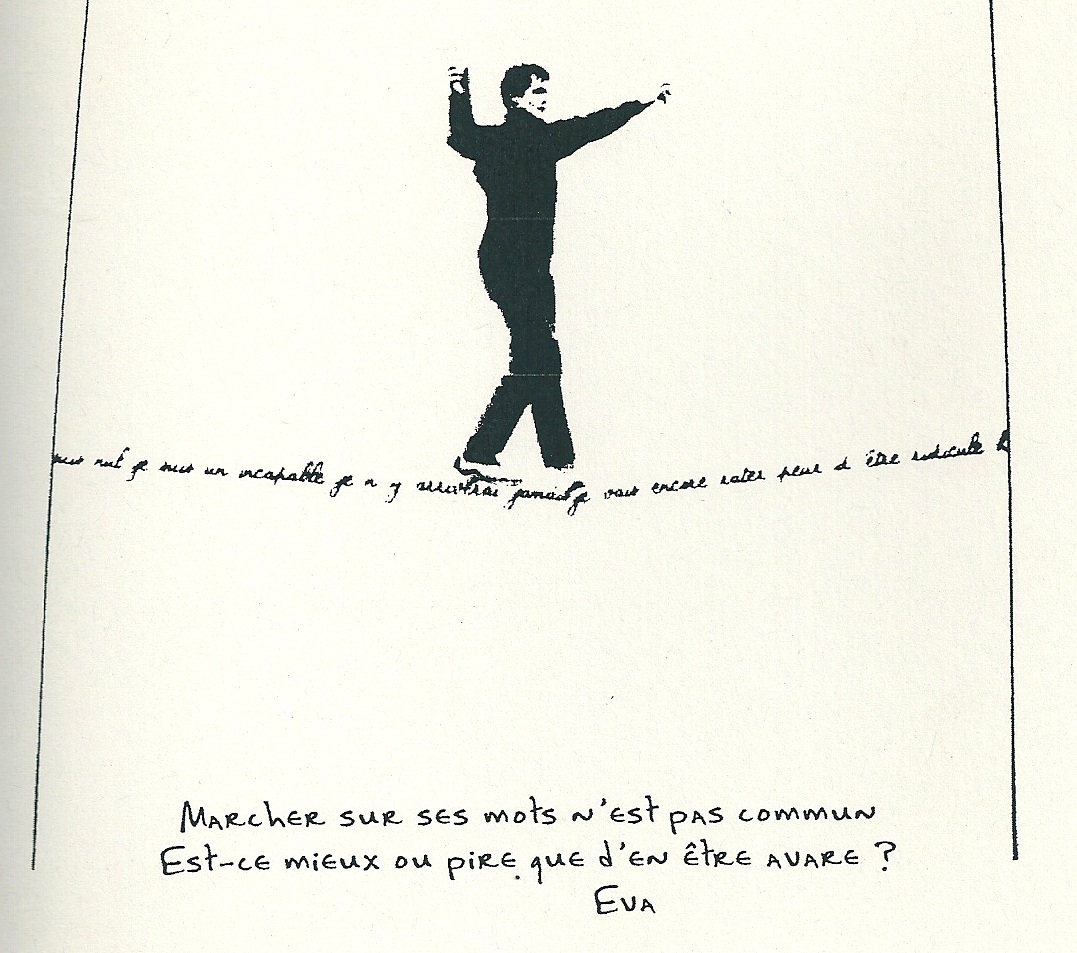 suis nul je suis un incapable je n y arriverai jamais je vais encore rater peur d être ridicule
Marcher sur ses mots n'est pas commun
Est-ce mieux ou pire que d'en être avare ?
Eva